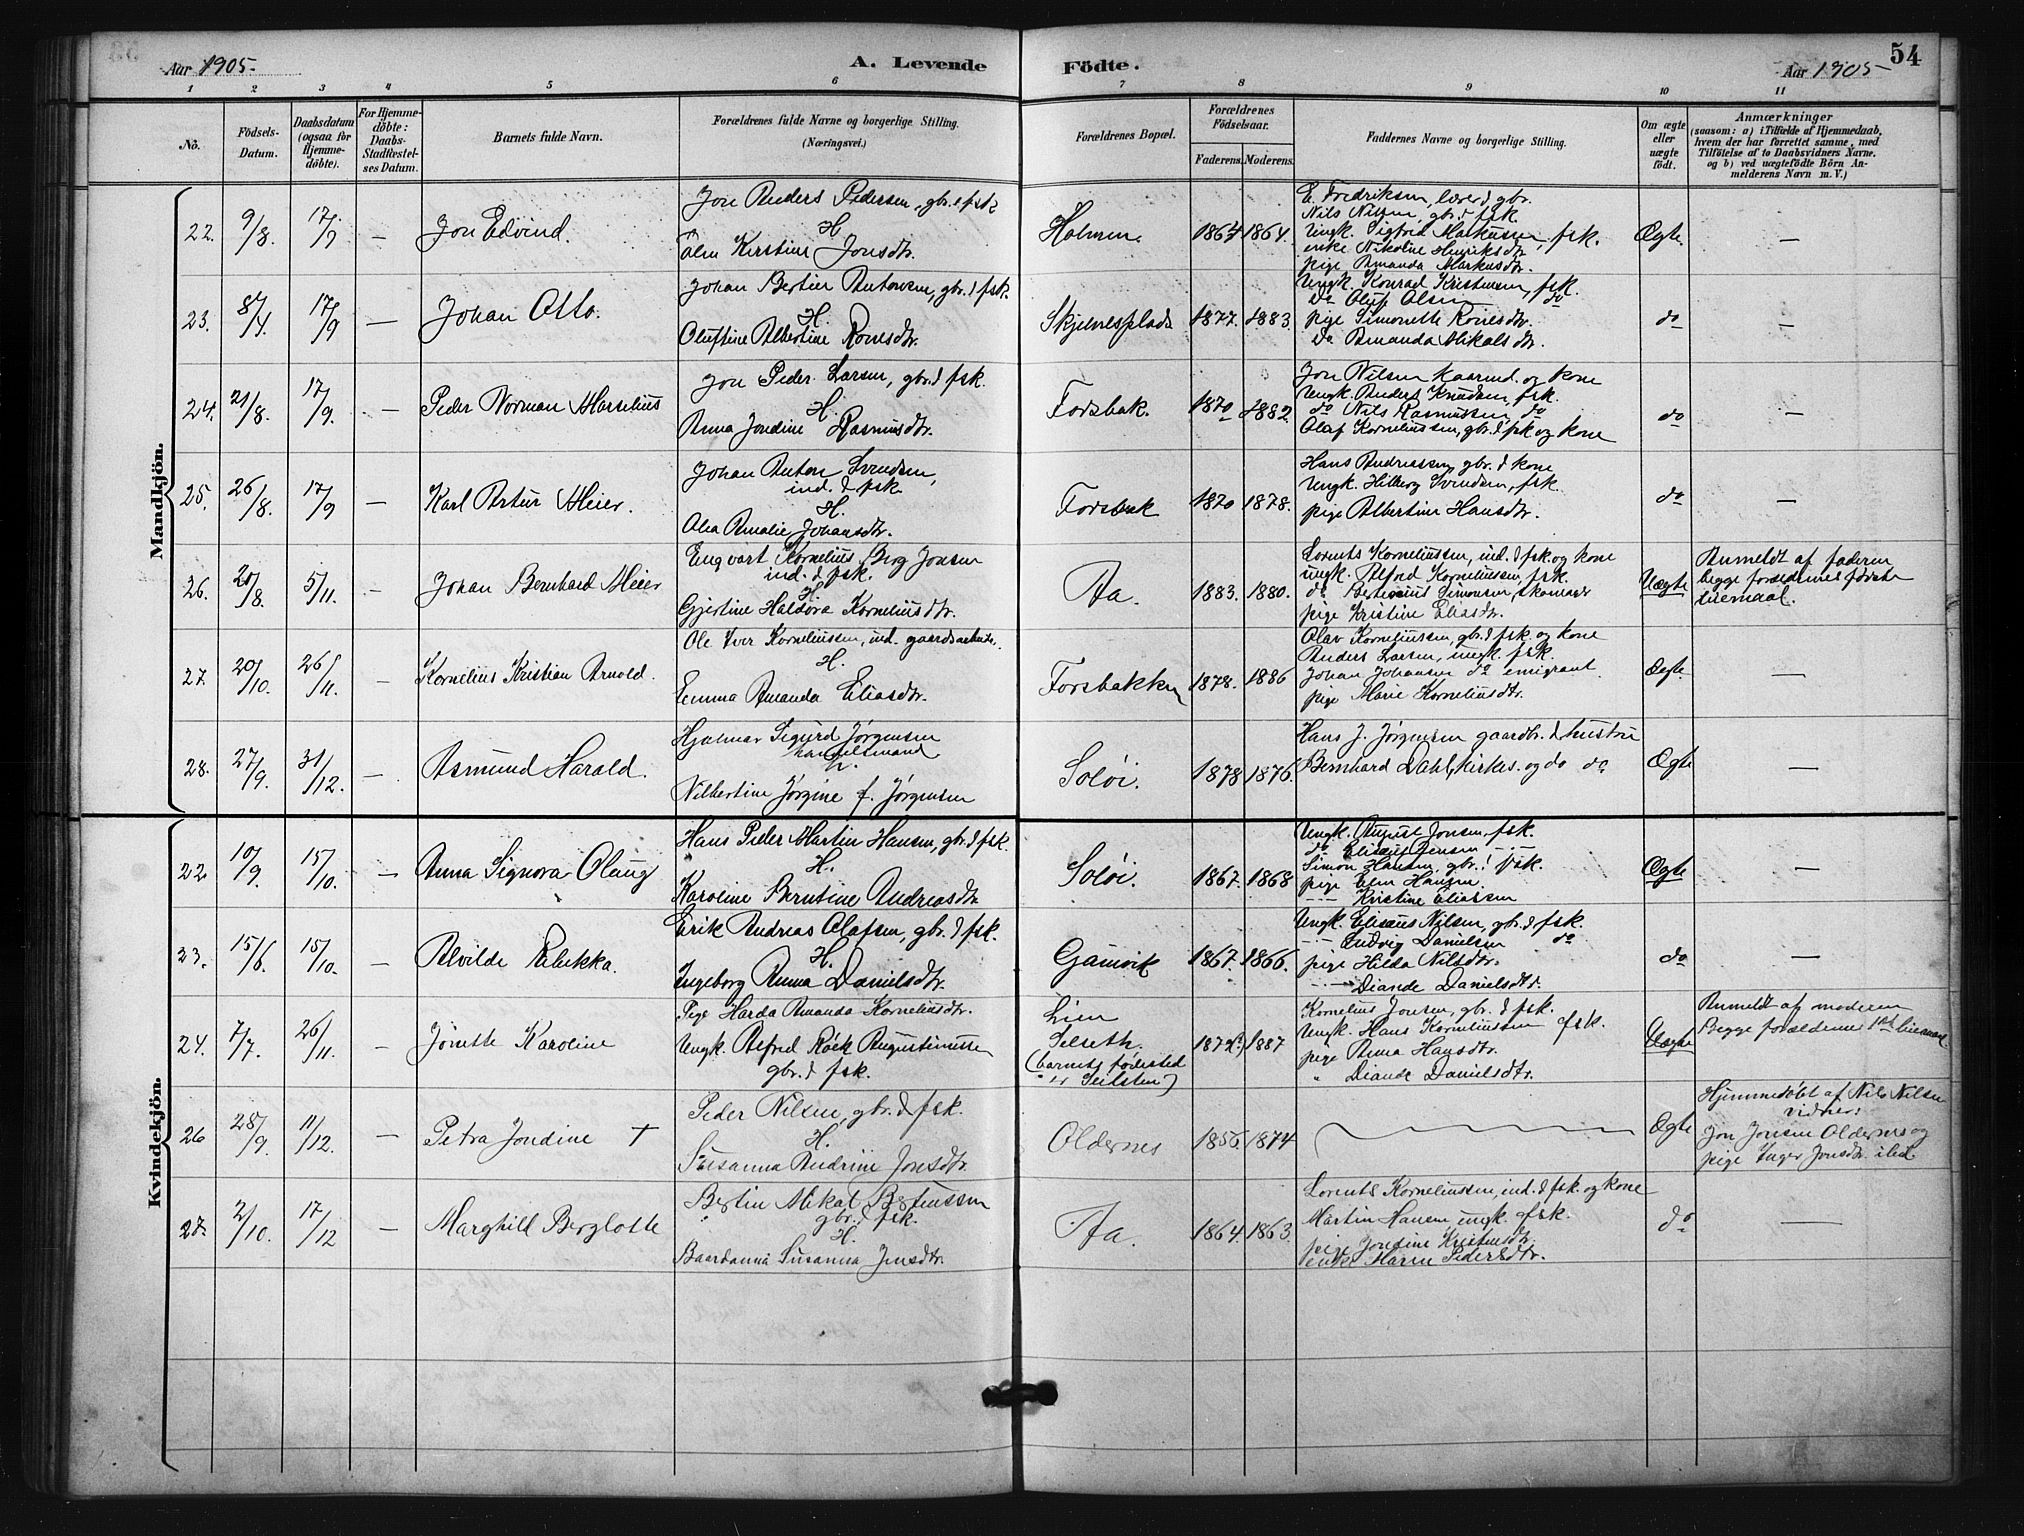 Aar 1905. A. Levende
Födte. Aar 1905 54
1 2 3 4 5 6 7 8 9 10 11
No.
Födsels-
Datum.
Daabsdatum
(ogsaa for
Hjemme-
döbte).
For Hjemme-
döbte:
Daabs-
Stadfæstel-
ses Datum.
Barnets fulde Navn.
Forældrenes fulde Navne og borgerlige Stilling.
(Næringsvei.)
Forældrenes Bopæl.
Forældrenes
Födselsaar.
Faderens. Moderens.
Faddernes Navne og borgerlige Stilling.
Om ægte
eller
uægte
födt.
Anmærkninger
(saasom: a) i Tilfælde af Hjemmedaab,
hvem der har forrettet samme, med
Tilföielse af to Daabsvidners Navne.
og b) ved uægtefödte Börn An-
melderens Navn m. V.)
Mandkjön.
22. 9/8. 17/9 — Jon Edvind.
Jon Anders Pedersen, gbr. & fsk.
H
Kirstine Jonsdtr.
Holmen 1864 1864.
E. Fredriksen, lærer & gbr.
Nils Nilsen, gbr. & fsk.
Ungk. Sigfrid Markussen, fsk.
enke Nikoline Henriksdtr.
pige Amanda Markusdtr.
Ægte. —
23. 8/4. 17/9 — Johan Otto.
Johan Bertin Antonsen, gbr. & fsk.
H.
Oluftine Albertine
Skjelnesplads 1877. 1883.
Ungk. Konrad Kristensen, fsk.
Do Oluf Olsen do
pige Simonette
Do Amanda Mikalsdtr.
do —
24. 21/8. 17/9. — Peder Norman Marselius
Jon Peder Larsen, gbr. & fsk.
H.
Anna Jondine Rasmusdtr.
Forsbak. 1870 1882.
Jon Nilsen kaarmd. og kone
Ungk. Anders Knudsen, fsk.
do Nils Rasmussen do
Olaf Korneliussen, gbr. & fsk og kone
do —
25. 26/8. 17/9 — Karl Artur Meier.
Johan Anton Svendsen,
ind. & fsk.
H.
Olea Amalie Johansdtr.
Forsbak 1870 1878.
Hans Andreassen gbr. & kone
Ungk. Hilberg Svendsen, fsk.
pige Albertine Hansdtr.
do —
26. 20/8. 5/11. — Johan Bernhard Meier
Engvart Kornelius Berg Jonsen
ind. & fsk.
H.
Gjertine Haldora Korneliusdtr.
Aa. 1883. 1880.
Lorents Korneliussen, ind. & fsk. og kone
ungk. Alfred Korneliussen, fsk.
do Simonsen, skomager
pige Kristine Eliasdtr.
Uægte
Anmeldt af faderen
begge forældrenes første
leiermaal.
27. 20/10. 26/11. — Kornelius Kristian Arnold.
Ole Iver Korneliussen, ind. gaardsarbeider.
H.
Emma Amanda Eliasdtr.
Forsbakken 1878. 1886
Olav Korneliussen, gbr. & fsk. og kone
Anders Larsen, ungk. fsk.
Johan Johansen do emigrant
pige Marie Korneliusdtr.
Ægte. —
28. 27/9. 31/12. — Asmund Harald.
Hjalmar Sigurd Jørgensen
handelsmand
H.
Nilbertine Jørgine f. Jørgensen
Soløi. 1878 1876.
Hans J. Jørgensen gaardbr. & hustru
Bernhard Dahl, kirkes. og do do
Ægte —
Kvindekjön.
22 10/9. 15/10. — Anna Signora Olaug
Hans Peder Martin Hansen, gbr. & fsk.
H.
Karoline Berntine Andreasdtr
Soløi. 1867. 1868
Ungk. August Jonsen, fsk.
do Elisæus Jensen
Simon Hansen gbr. & fsk.
pige Hansen.
Kristine Eliassen
Ægte —
23. 15/6. 15/10. — Alvilde Rebekka.
Erik Andreas Olafsen, gbr. & fsk.
H.
Ingeborg Anna Danielsdtr.
Gamvik 1867. 1866.
Ungk. Elisæus Nilsen, gbr. & fsk.
Ludvig Danielsen do
pige Hilda Nilsdtr.
Diande Danielsdtr.
do —
24. 7/7. 26/11. — Jonette Karoline
Pige Harda Amanda Korneliusdtr.
Ungk. Alfred Røek Augustinussen
gbr. & fsk.
Lien
Selseth.
(barnets fødested
er Seilsten)
187 1887
Kornelius Jonsen, gbr. & fsk.
Ungk. Hans Korneliussen fsk.
pige Anna Hansdtr.
" Diande Danielsdtr.
Uægte
Anmeldt af moderen
Begge forældrene 1ste leiermaal.
26 25/9. 11/12. — Petra Jondine †
Peder Nilsen, gbr. & fsk.
H.
Susanna Andrine Jonsdtr.
Oldernes 1856 1874
Ægte
Hjemmedøbt af Nils Nilsen
vidner:
Jon Jonsen Oldernes og
pige Inger Jonsdtr. ibd.
27. 2/10. 17/12 — Marghill Berglotte
Bertin Mikal Berteussen
gbr. & fsk.
H.
Baardanna Susanna Jensdtr.
Aa. 1864. 1863.
Lorents Korneliussen, ind. & fsk. og kone
Martin Hansen ungk. fsk.
pige Jondine Kristensdtr.
enke Maren Pedersdtr.
do —